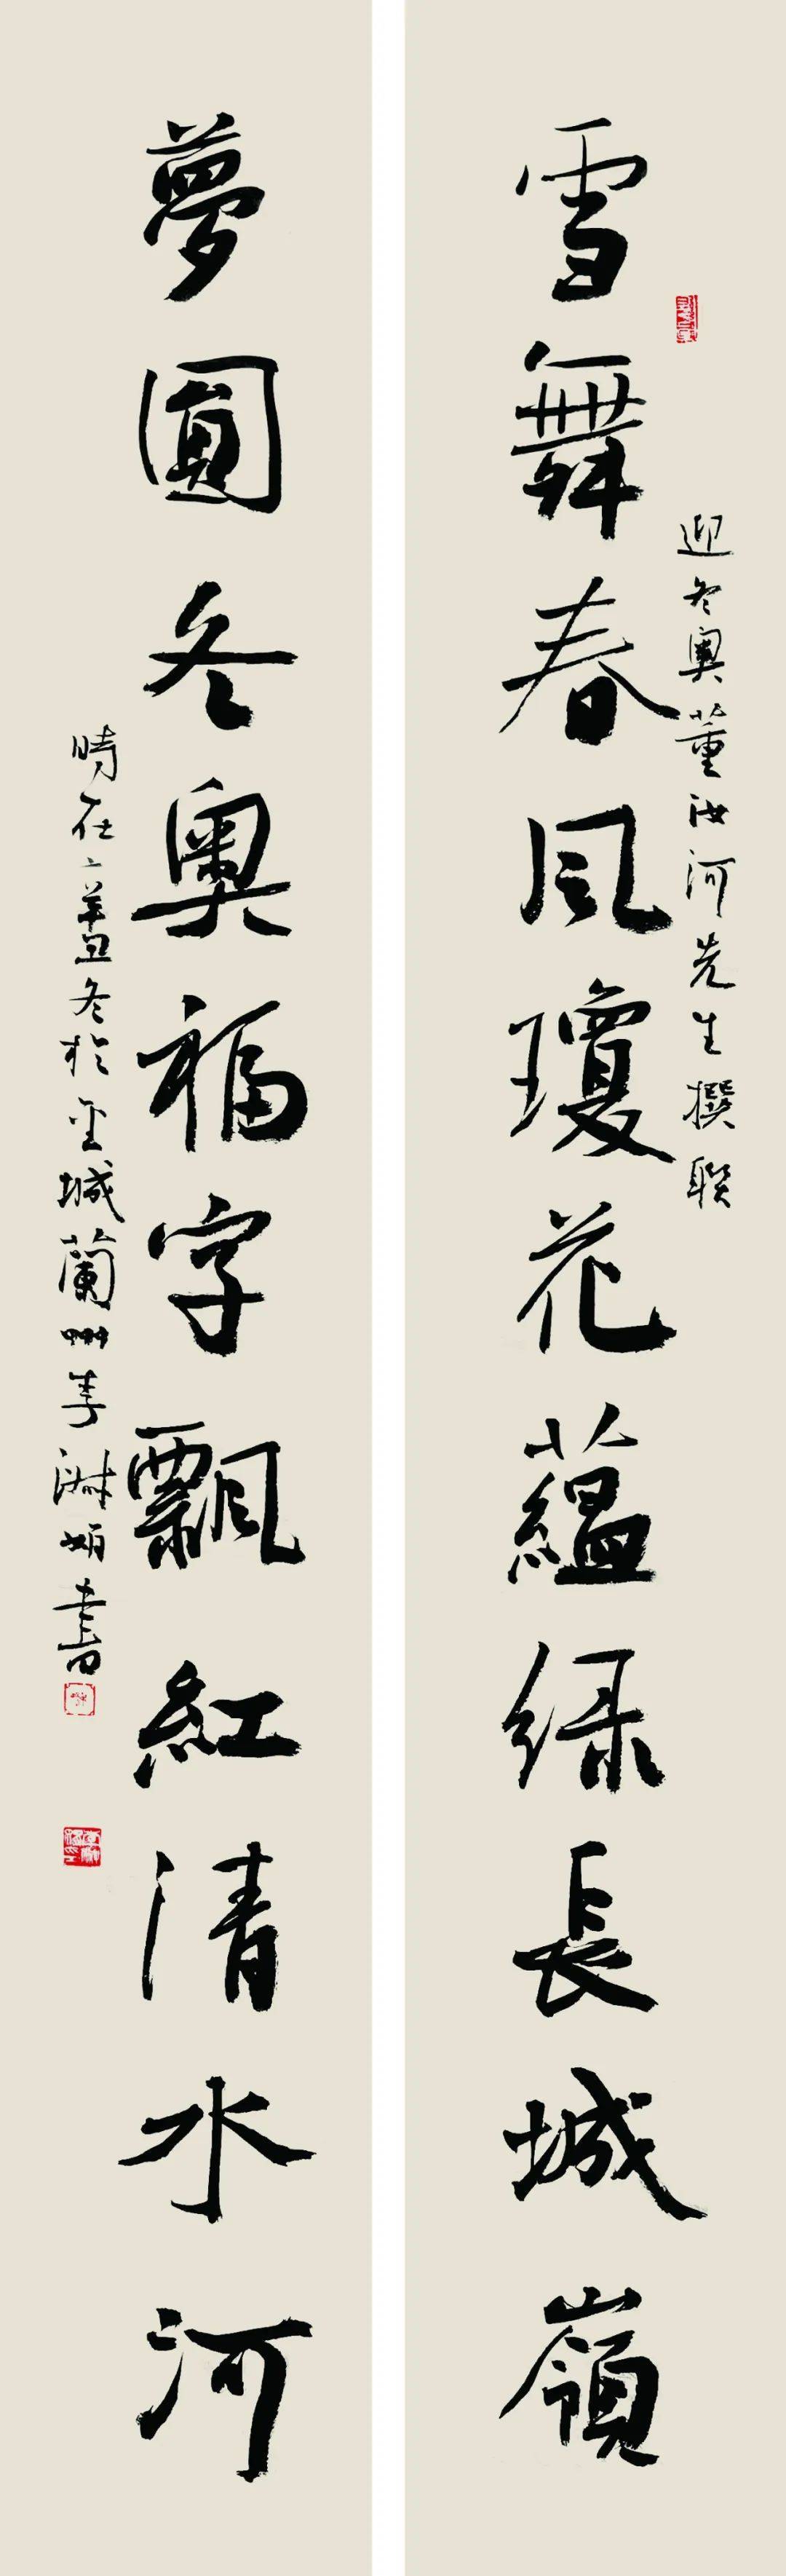 迎冬奧董汝河先生撰聯
雪舞春風瓊花蘊绿長城嶺
夢圓冬奧福字飄紅清水河
時在辛丑冬於金城蘭州李淑娟書